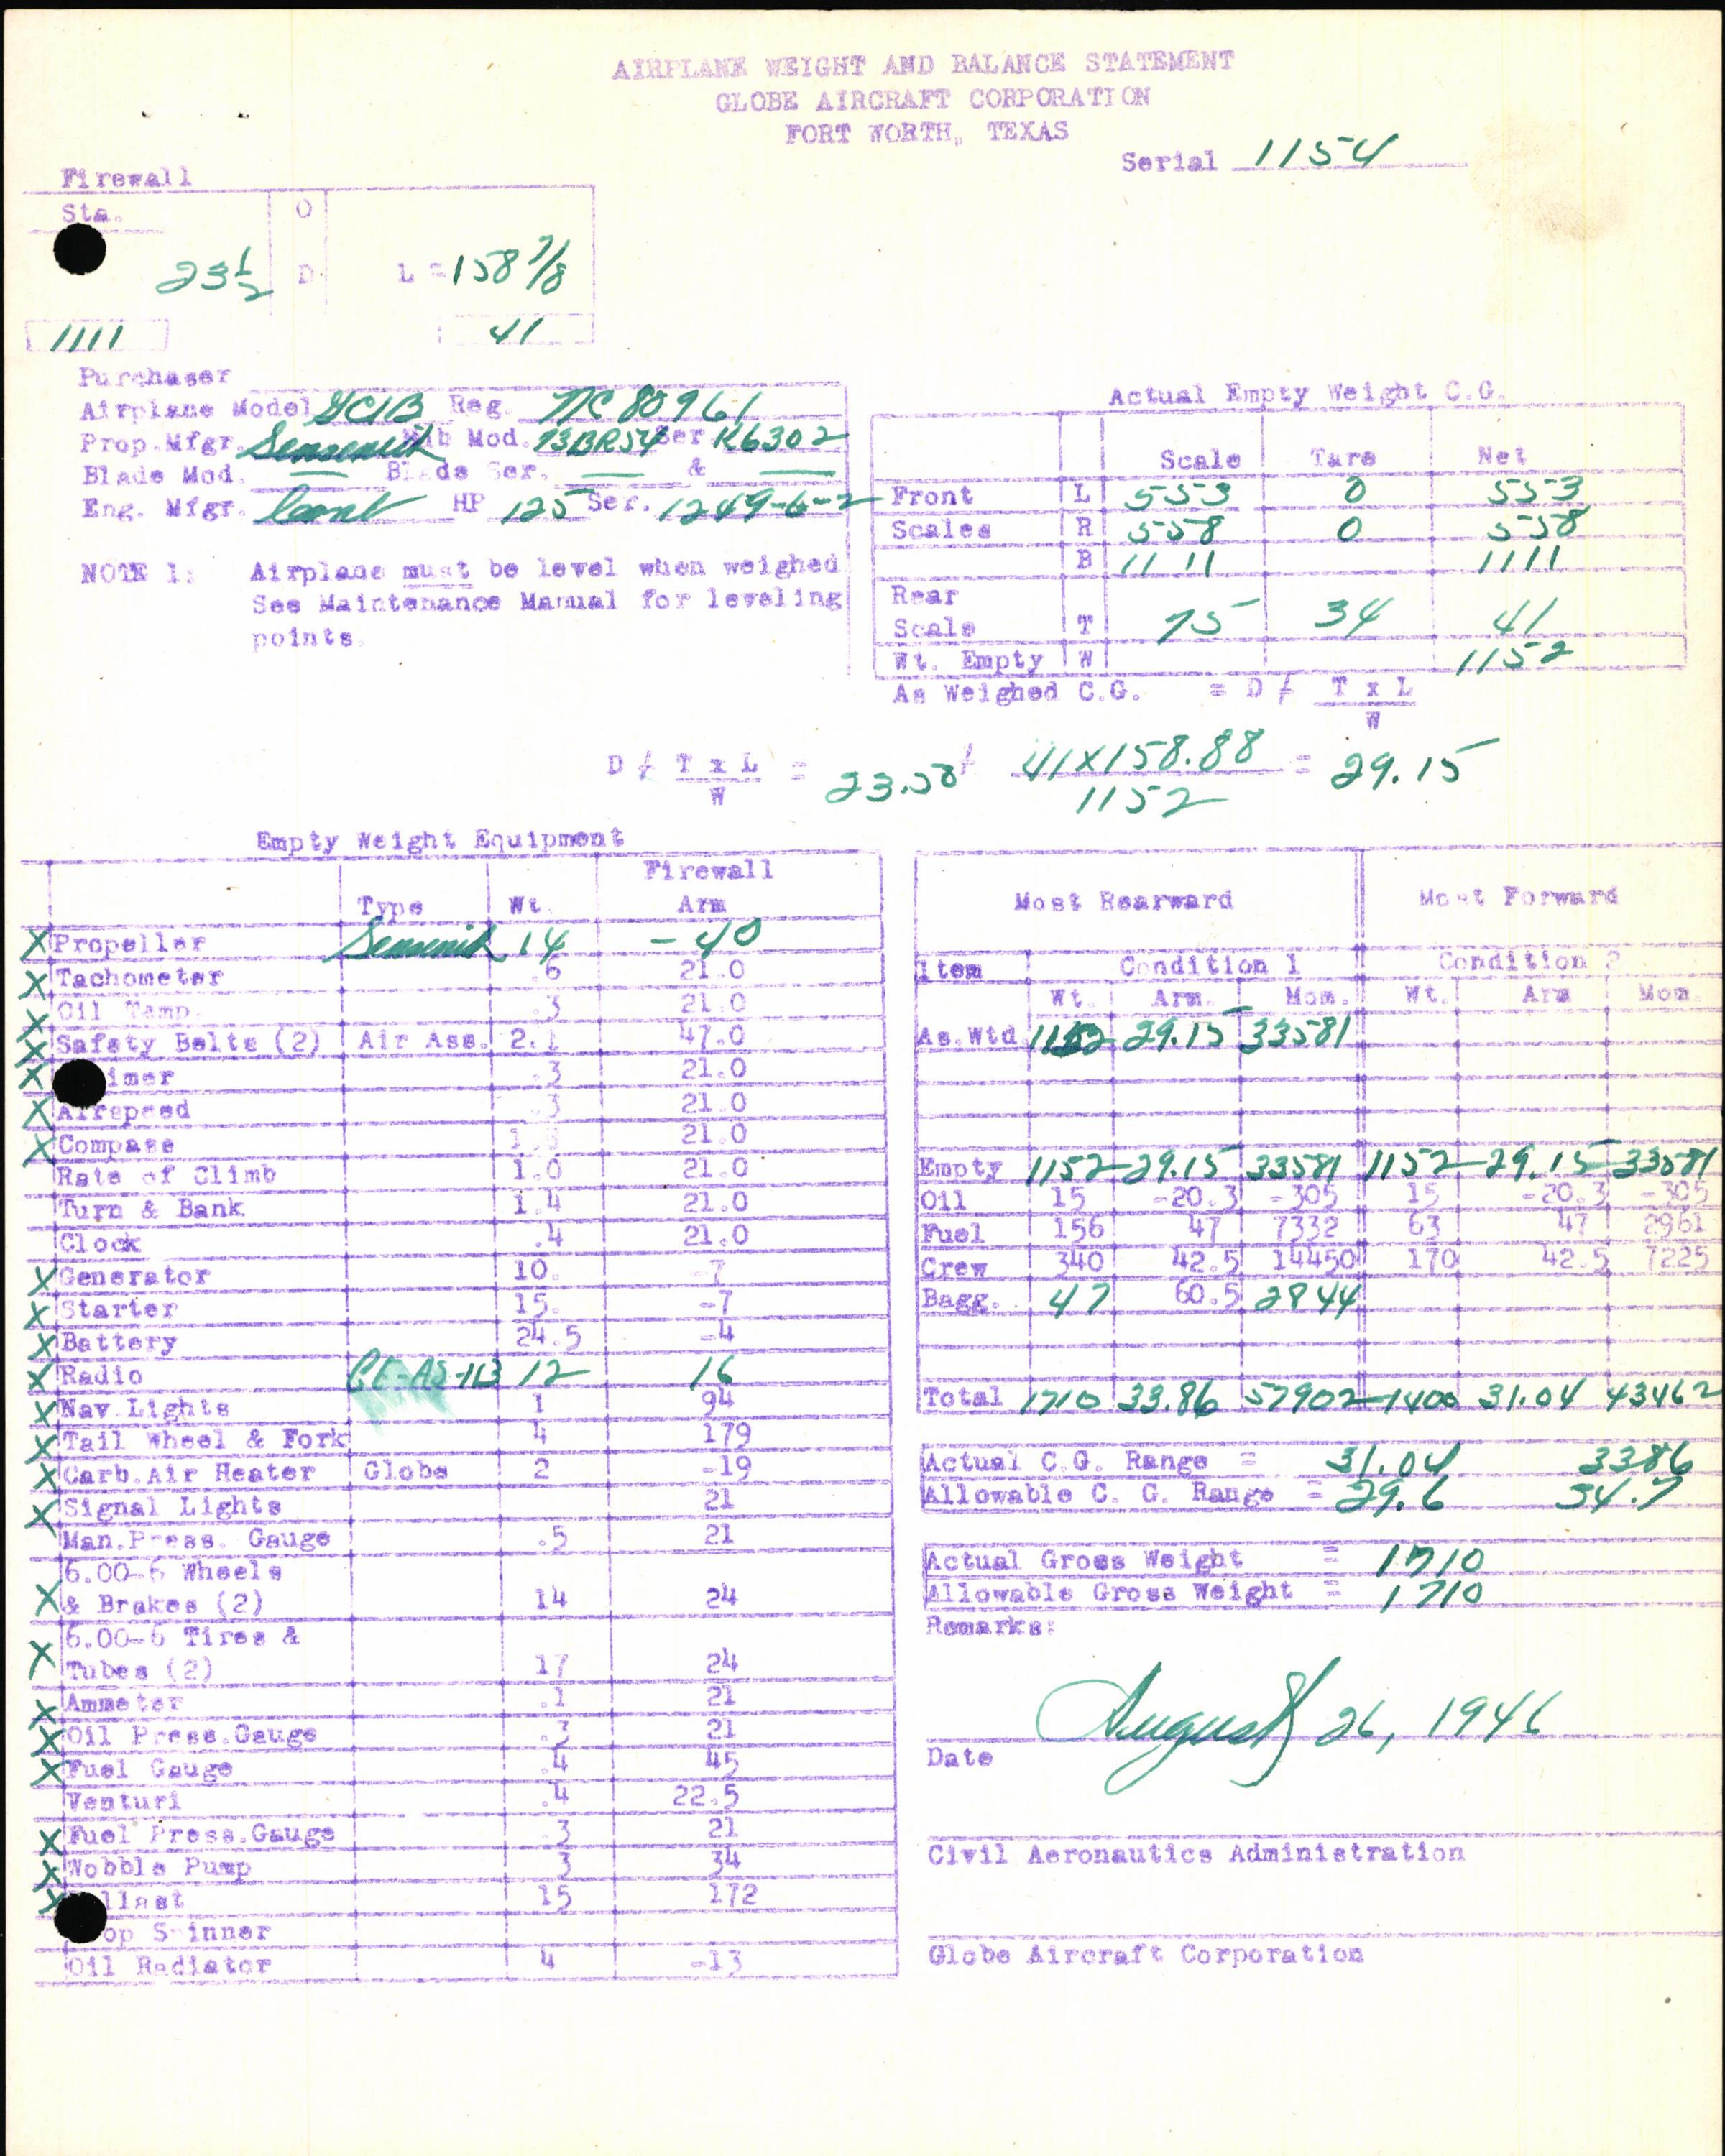 AIRPLANE WEIGHT AND BALANCE STATEMENT
GLOBE AIRCRAFT CORPORATION
FORT WORTH, TEXAS
Serial 1154
Firewall
Sta. O
23 1/2 D L = 158 7/8
1111 41
Purchaser
Airplane Model GC1B Reg. NC 80961
Prop.Mfgr. Sensenich Hub Mod. 73BR54 Ser K6302
Blade Mod. — Blade Ser. — & —
Eng. Mfgr. Cont HP 125 Ser. 1249-6-2
NOTE 1: Airplane must be level when weighed
See Maintenance Manual for leveling
points.
Actual Empty Weight C.G.
Scale Tare Net
Front L 553 0 553
Scales R 558 0 558
B 1111 1111
Rear
Scale T 75 34 41
Wt. Empty W 1152
As Weighed C.G. = D ≠ T x L
W
D ≠ T x L = 23.50 + 41X158.88 = 29.15
W 1152
Empty Weight Equipment
Firewall
Type Wt. Arm
X Propeller Sensenich 14 -40
X Tachometer .6 21.0
X Oil Temp. .3 21.0
X Safety Belts (2) Air Ass. 2.1 47.0
X imer .3 21.0
X Airspeed .3 21.0
X Compass 21.0
Rate of Climb 1.0 21.0
Turn & Bank 1.4 21.0
Clock .4 21.0
X Generator 10. -7
X Starter 15. -7
X Battery 24.5 -4
X Radio 12 16
X Nav.Lights 1 94
X Tail Wheel & Fork 4 179
X Carb.Air Heater Globe 2 -19
X Signal Lights 21
Man.Press. Gauge .5 21
6.00-6 Wheels
X & Brakes (2) 14 24
6.00-6 Tires &
X Tubes (2) 17 24
X Ammeter .1 21
X Oil Press.Gauge .3 21
X Fuel Gauge .4 45
Venturi .4 22.5
X Fuel Press.Gauge .3 21
X Wobble Pump 3 34
X llast 15 172
op Spinner
Oil Radiator 4 -13
Most Rearward Most Forward
Item Condition 1 Condition 2
Wt. Arm. Mom. Wt. Arm Mom.
As.Wtd 1152 29.15 33581
Empty 1152 29.15 33581 1152 29.15 33581
Oil 15 -20.3 -305 15 -20.3 -305
Fuel 156 47 7332 63 47 2961
Crew 340 42.5 14450 170 42.5 7225
Bagg. 47 60.5 2844
Total 1710 33.86 57902 1400 31.04 43462
Actual C.G. Range = 31.04 3386
Allowable C. G. Range = 29.6 34.7
Actual Gross Weight = 1710
Allowable Gross Weight = 1710
Remarks:
August 26, 1946
Date
Civil Aeronautics Administration
Globe Aircraft Corporation